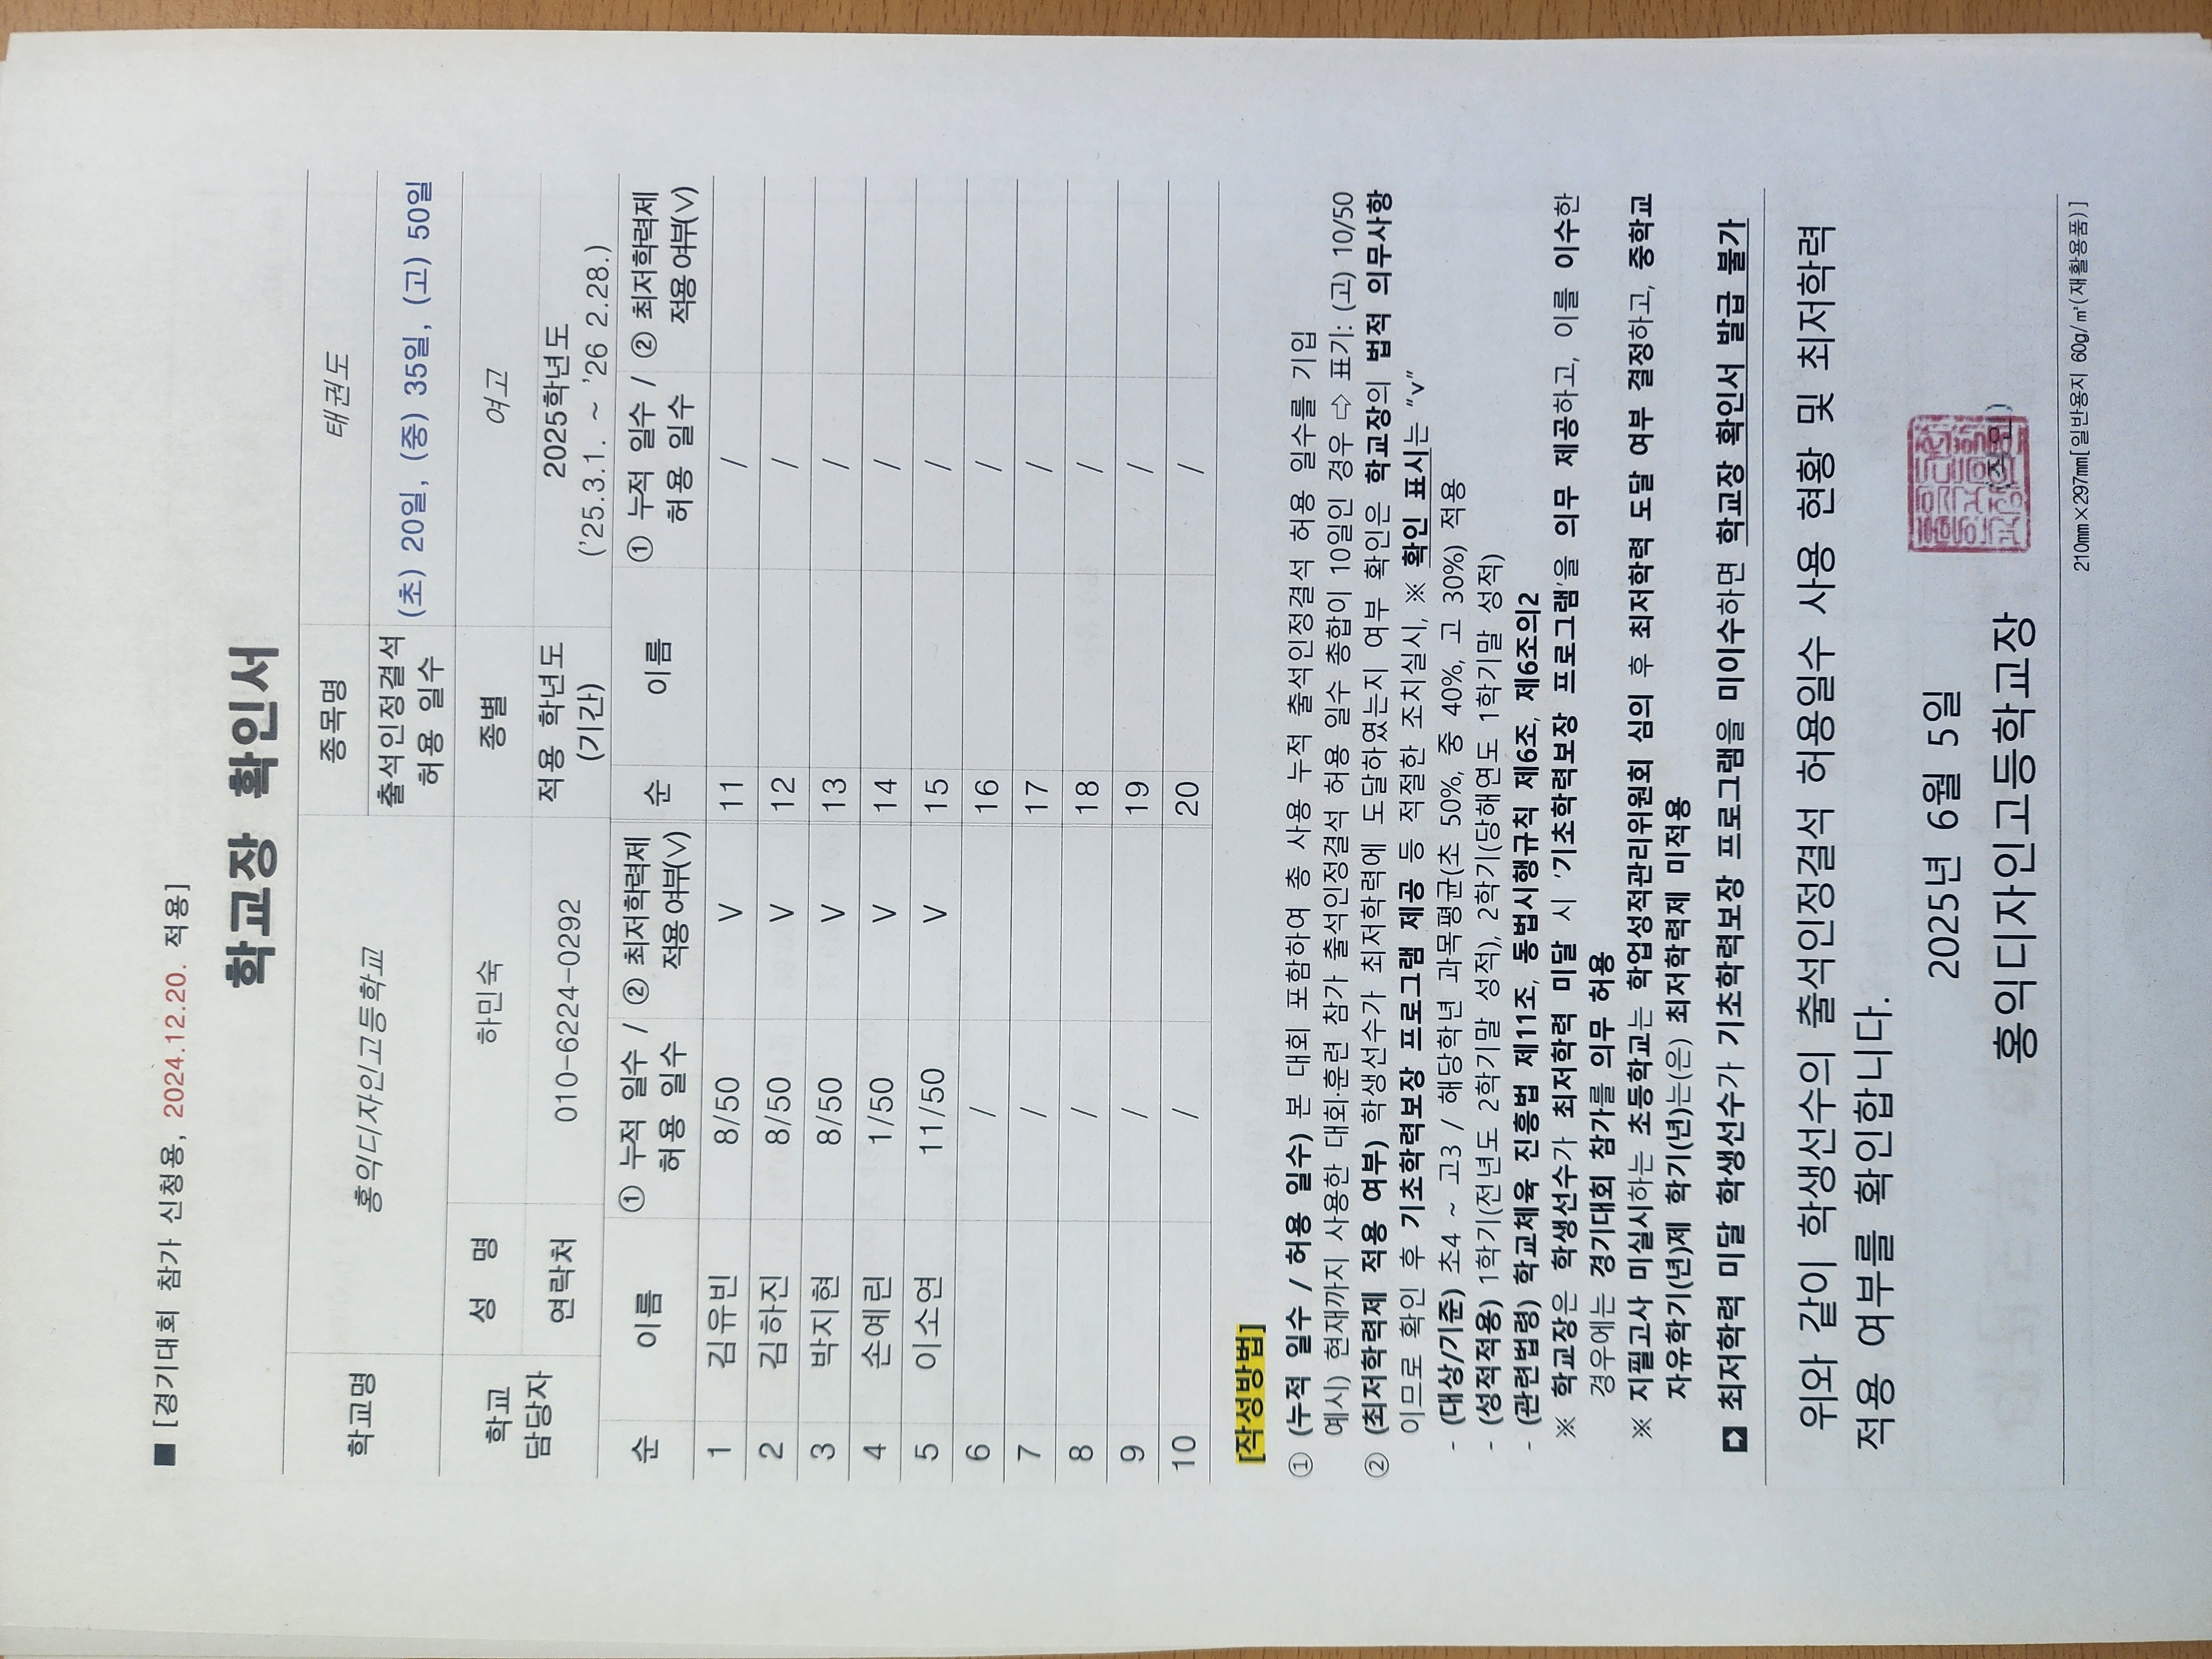 ■ [경기대회 참가 신청용, 2024.12.20. 적용]
학교장 확인서
학교명 홍익디자인고등학교 종목명 태권도
출석인정결석 허용 일수 (초) 20일, (중) 35일, (고) 50일
학교 담당자 성 명 하민숙 종별 여고
연락처 010-6224-0292 적용 학년도 (기간) 2025학년도 ('25.3.1. ~ '26 2.28.)
순 이름 ① 누적 일수 / 허용 일수 ② 최저학력제 적용 여부(∨) 순 이름 ① 누적 일수 / 허용 일수 ② 최저학력제 적용 여부(∨)
1 김유빈 8/50 V 11 /
2 김하진 8/50 V 12 /
3 박지현 8/50 V 13 /
4 손예린 1/50 V 14 /
5 이소연 11/50 V 15 /
6 / 16 /
7 / 17 /
8 / 18 /
9 / 19 /
10 / 20 /
[작성방법]
① (누적 일수 / 허용 일수) 본 대회 포함하여 총 사용 누적 출석인정결석 허용 일수를 기입
예시) 현재까지 사용한 대회·훈련 참가 출석인정결석 허용 일수 총합이 10일인 경우 ⇨ 표기: (고) 10/50
② (최저학력제 적용 여부) 학생선수가 최저학력에 도달하였는지 여부 확인은 학교장의 법적 의무사항
이므로 확인 후 기초학력보장 프로그램 제공 등 적절한 조치실시, ※ 확인 표시는 "v"
- (대상/기준) 초4 ~ 고3 / 해당학년 과목평균(초 50%, 중 40%, 고 30%) 적용
- (성적적용) 1학기(전년도 2학기말 성적), 2학기(당해연도 1학기말 성적)
- (관련법령) 학교체육 진흥법 제11조, 동법시행규칙 제6조, 제6조의2
※ 학교장은 학생선수가 최저학력 미달 시 '기초학력보장 프로그램'을 의무 제공하고, 이를 이수한
경우에는 경기대회 참가를 의무 허용
※ 지필고사 미실시하는 초등학교는 학업성적관리위원회 심의 후 최저학력 도달 여부 결정하고, 중학교
자유학기(년)제 학기(년)는(은) 최저학력제 미적용
➡ 최저학력 미달 학생선수가 기초학력보장 프로그램을 미이수하면 학교장 확인서 발급 불가
위와 같이 학생선수의 출석인정결석 허용일수 사용 현황 및 최저학력
적용 여부를 확인합니다.
2025년 6월 5일
홍익디자인고등학교장 (직인)
210㎜×297㎜[일반용지 60g/㎡(재활용품)]